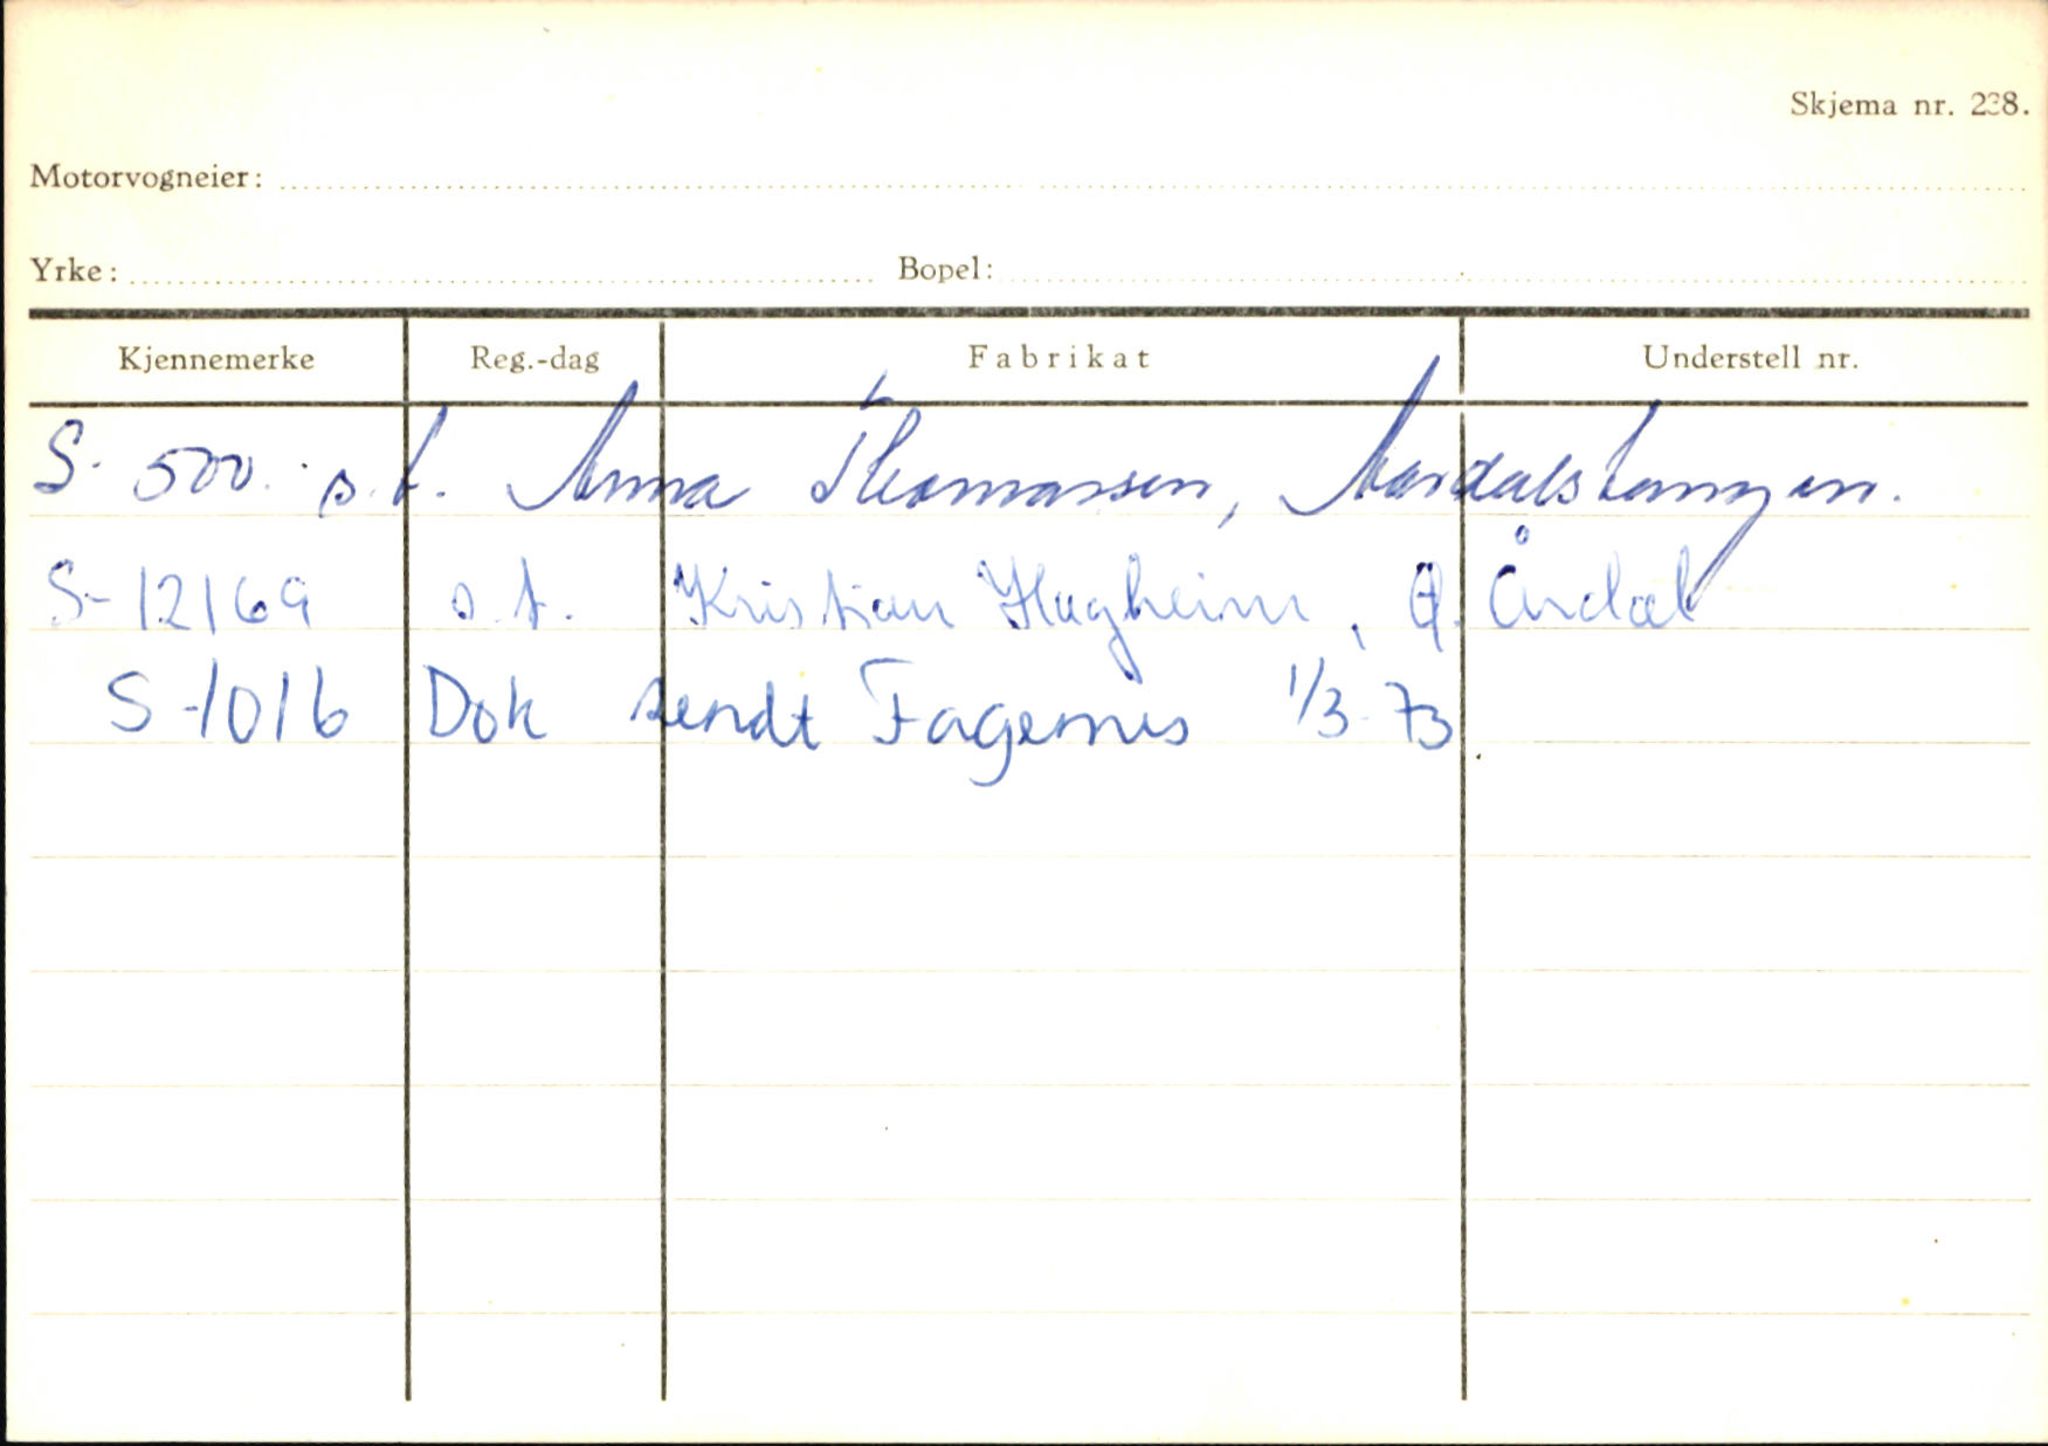 Skjema nr. 238.
Motorvogneier:
Yrke: Bopel:
Kjennemerke Reg.-dag Fabrikat Understell nr.
S- 500. s.t. Anna Thomassen, Aardalstangen.
S-12169 s.t. Kristian Hagheim, Ø. Årdal
S-1016 Dok sendt Fagernes 1/3-73